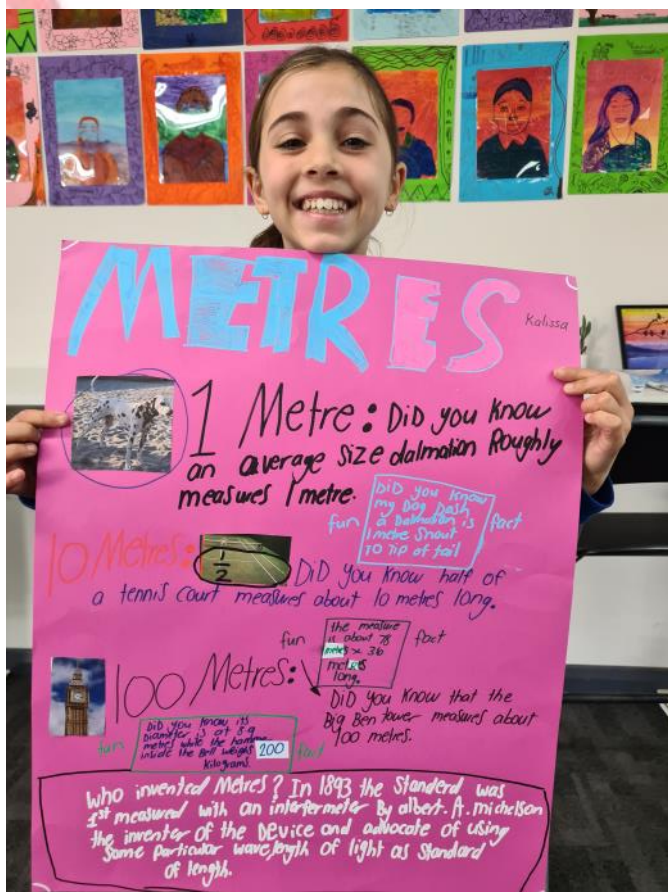 METRES
Kalissa
1 Metre: Did you know
an average size dalmation Roughly
measures 1 metre.
fun
DiD you know
my Dog Dash
a Dalmation is
1 metre Snout
to Tip of tail
fact
10 Metres:
1/2
DiD you know half of
a tennis court measures about 10 metres long.
fun
the measure
is about 78
metres x 36
metres
long.
fact
100 Metres:
DiD you know that the
Big Ben tower measures about
100 metres.
fun
DiD you know its
Diameter is at 8.9
metres while the hammer
inside the Bell weighs 200
kilograms
fact
Who invented Metres? In 1893 the Standerd was
1st measured with an interfermeter By albert. A. michelson
the inventer of the Device and advocate of using
some particular wavelength of light as Standard
of length.